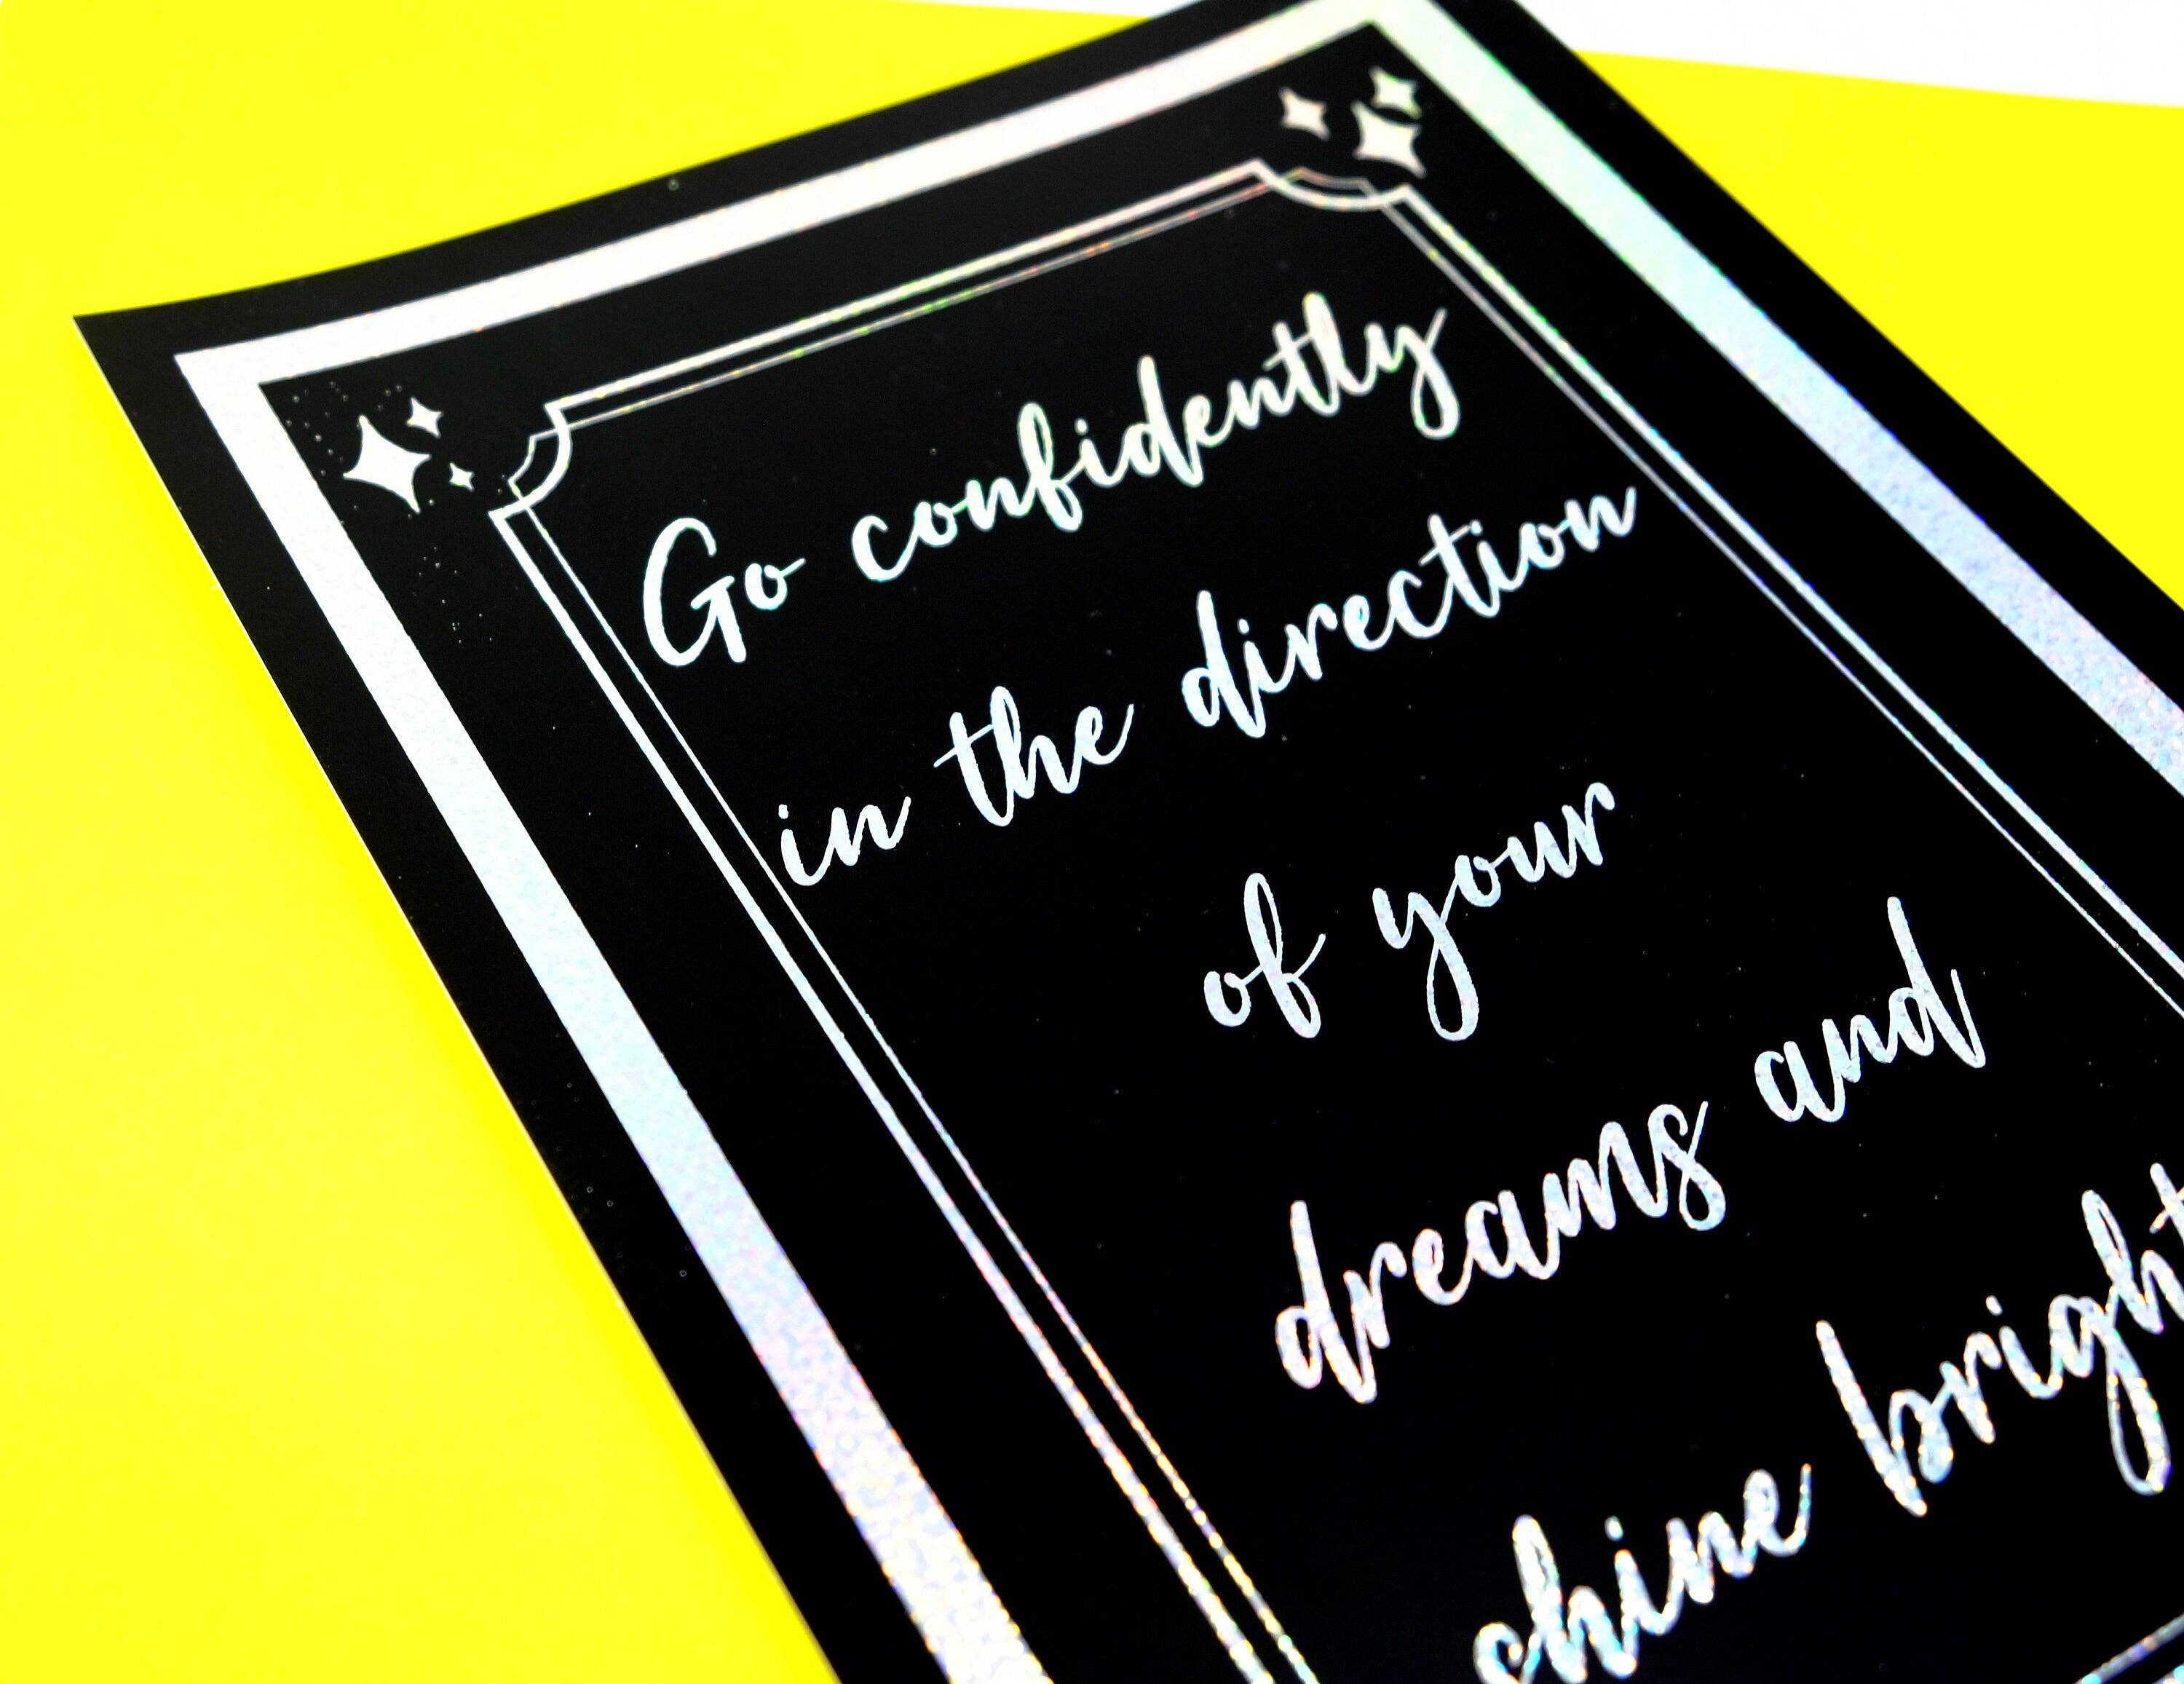 Go confidently
in the direction
of your
dreams and
shine bright